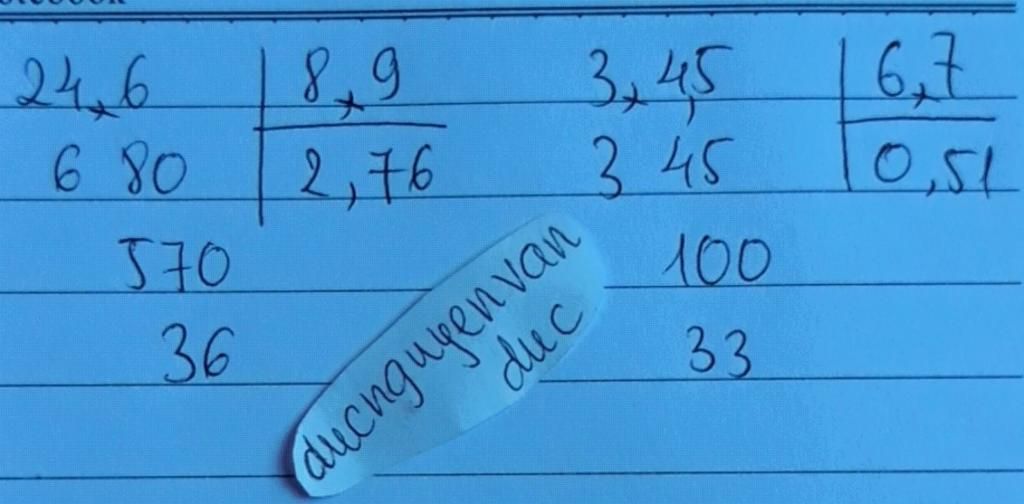 24,6 8,9 3,4,5 6,7
6 80 2,76 3 45 0,51
570 100
36 33
ducnguyenvan
duc